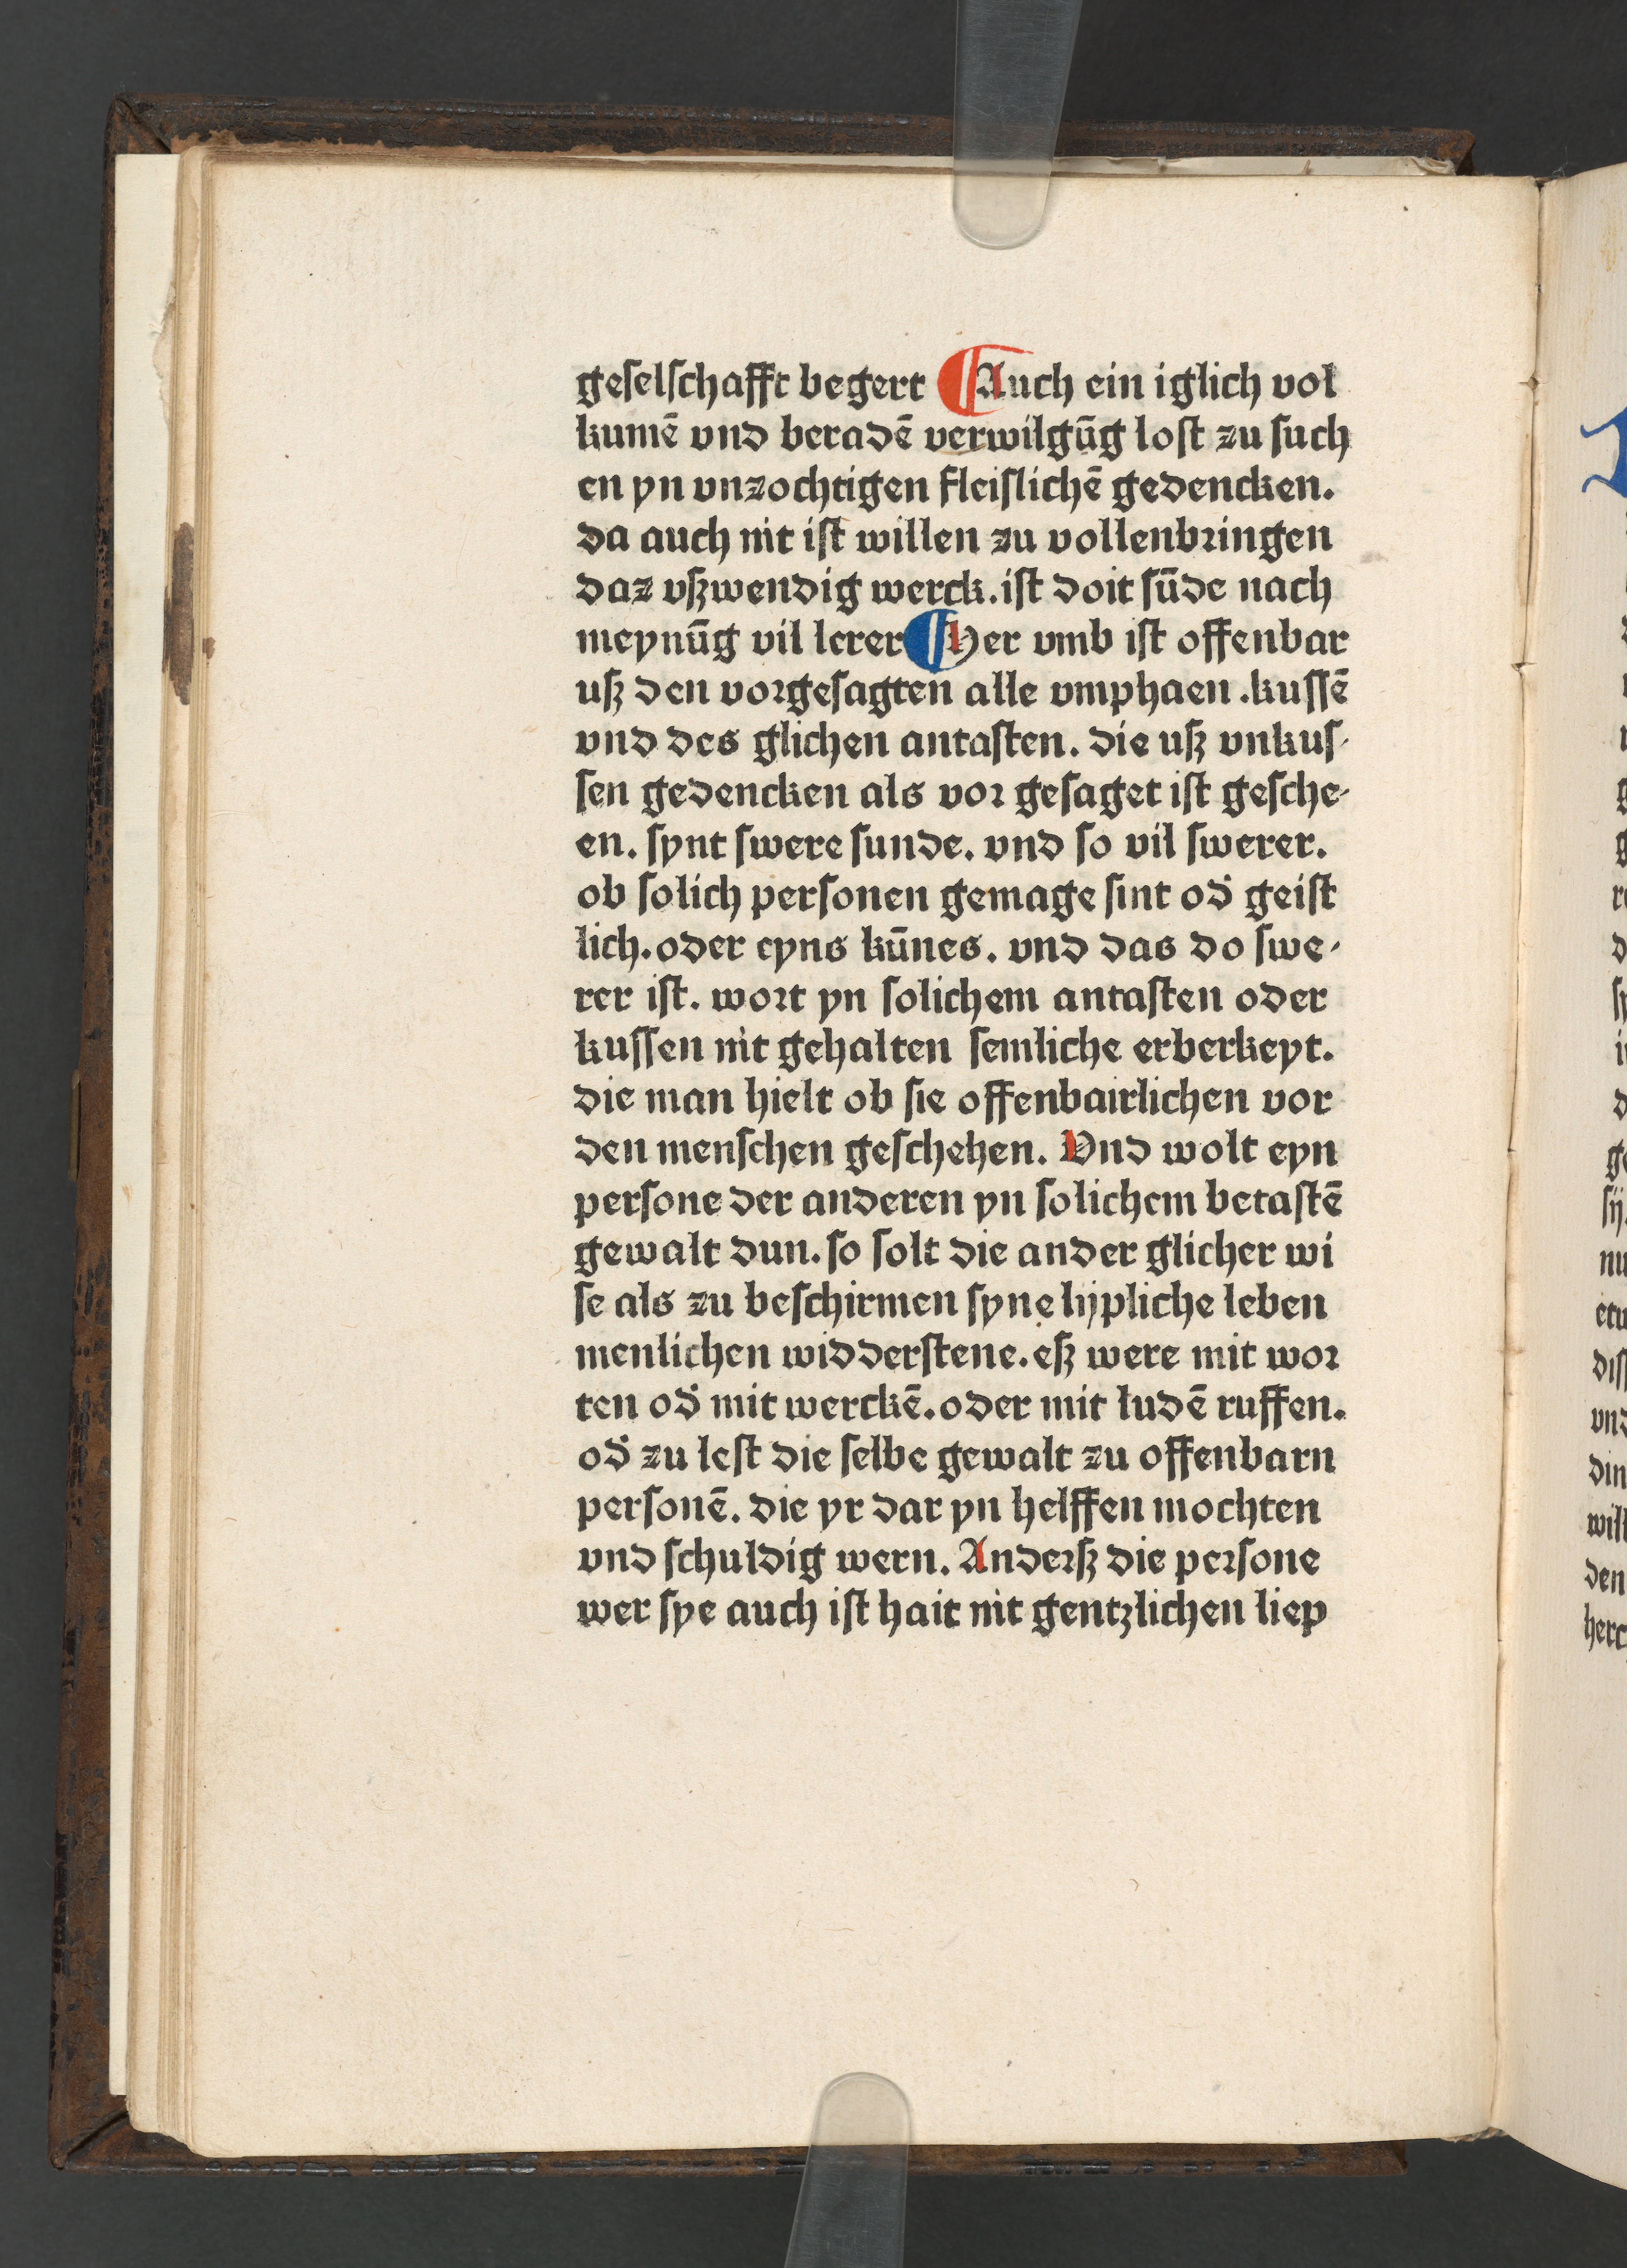 geselschafft begert ¶ Auch ein iglich vol
kumē vnd beradē verwilgūg lost zu such
en yn vnzochtigen fleislichē gedencken.
da auch nit ist willen zu vollenbringen
daz vßwendig werck. ist doit sūde nach
meynūg vil lerer ¶ Her vmb ist offenbar
uß den vorgesagten alle vmphaen. kussē
vnd des glichen antasten. die uß vnkus-
sen gedencken als vor gesaget ist gesche-
en. synt swere sunde. vnd so vil swerer.
ob solich personen gemage sint od̄ geist
lich. oder eyns kūnes. vnd das do swe-
rer ist. wort yn solichem antasten oder
kussen nit gehalten semliche erberkeyt.
die man hielt ob sie offenbairlichen vor
den menschen geschehen. Vnd wolt eyn
persone der anderen yn solichem betastē
gewalt dun. so solt die ander glicher wi
se als zu beschirmen syne lijpliche leben
menlichen widderstene. eß were mit wor
ten od̄ mit werckē. oder mit ludē ruffen.
od̄ zu lest die selbe gewalt zu offenbarn
personē. die yr dar yn helffen mochten
vnd schuldig wern. Anderß die persone
wer sye auch ist hait nit gentzlichen liep